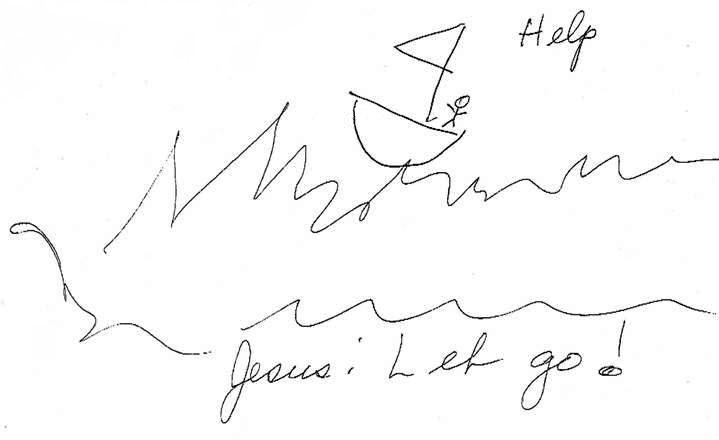 Help
Jesus: Let go!